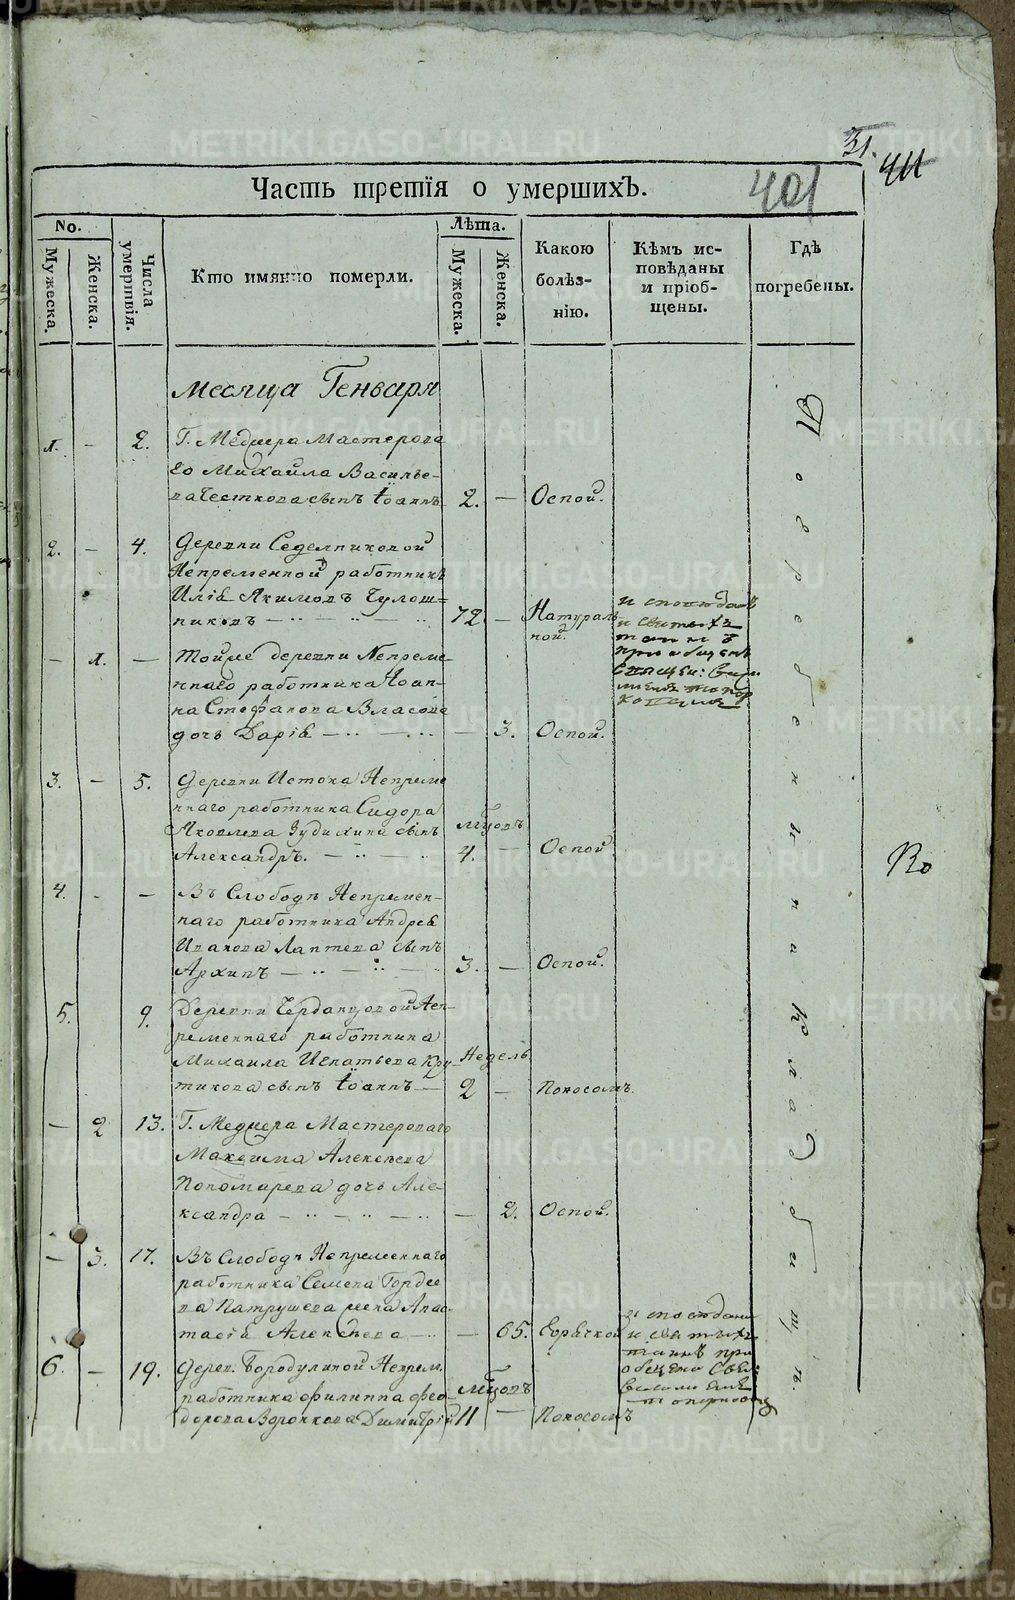 31.
411
401
Часть третія о умершихъ.
No.
Мужеска.
Женска.
Числа умертвія.
Кто имянно померли.
Лѣта.
Мужеска.
Женска.
Какою болѣз-
нію.
Кѣмъ ис-
повѣданы
и пріоб-
щены.
Гдѣ
погребены.
месяца Генваря
1. — 2. Г. Медиера Мастерова
го Михайла Василье-
ва Честкова сынъ Іоаннъ 2. — Оспой.
2. — 4. Деревни Седелниковой
Непременной работникъ
Иліѣ Якимовъ Чулош=
никовъ — 72. — Натураль
ной.
исповѣдан
и святыхъ
таинъ
приобщенъ
Священ:
— 1. — Тойже деревни Непреме-
ннаго работника Іоан-
на Стефанова Власова
дочь Даріѣ — — 3. Оспой.
3. — 5. Деревни Истока Непреме
ннаго работника Сидора
Яковлева Зудихина сынъ мцовъ
Александръ. — 4. — Оспой
4. - — Въ Слободѣ Непремен-
наго работника Андреѣ
Иванова Лаптева сынъ
Архипъ — 3. — Оспой.
5. 9. Деревни Чердынцовой Неп-
ременнаго работника
Михаила Игнатьева Кру- Недель
тикова сынъ Іоаннъ — 2 — Поносомъ.
— 2 13. Г. Медиера Мастероваго
Максима Алексѣева
Пономарева дочь Але-
ксандра — — 2. Оспой.
— 3. 17. Въ Слободѣ Непременнаго
работника Семена Гордее
ва Патрушева жена Анас-
тасіѣ Алексѣева — — 65. Горячкой
исповѣдана
и святыхъ
таинъ при
общена
6. — 19. Дерев. Бородулиной Непрем.
работника Филиппа Фео- мцовъ
дорова Воронкова Димитрій 11 — Поносомъ
На